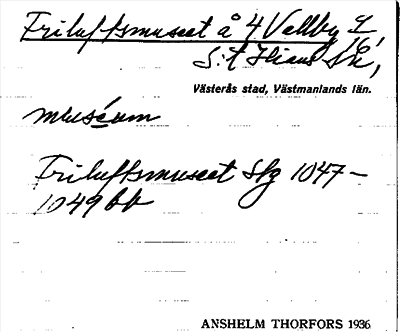 Friluftsmuseet å 4 Vallby 16,
S:t Ilians sn,
Västerås stad, Västmanlands län.
museum
Friluftsmuseet Skg 1047–
1049 bb
ANSHELM THORFORS 1936